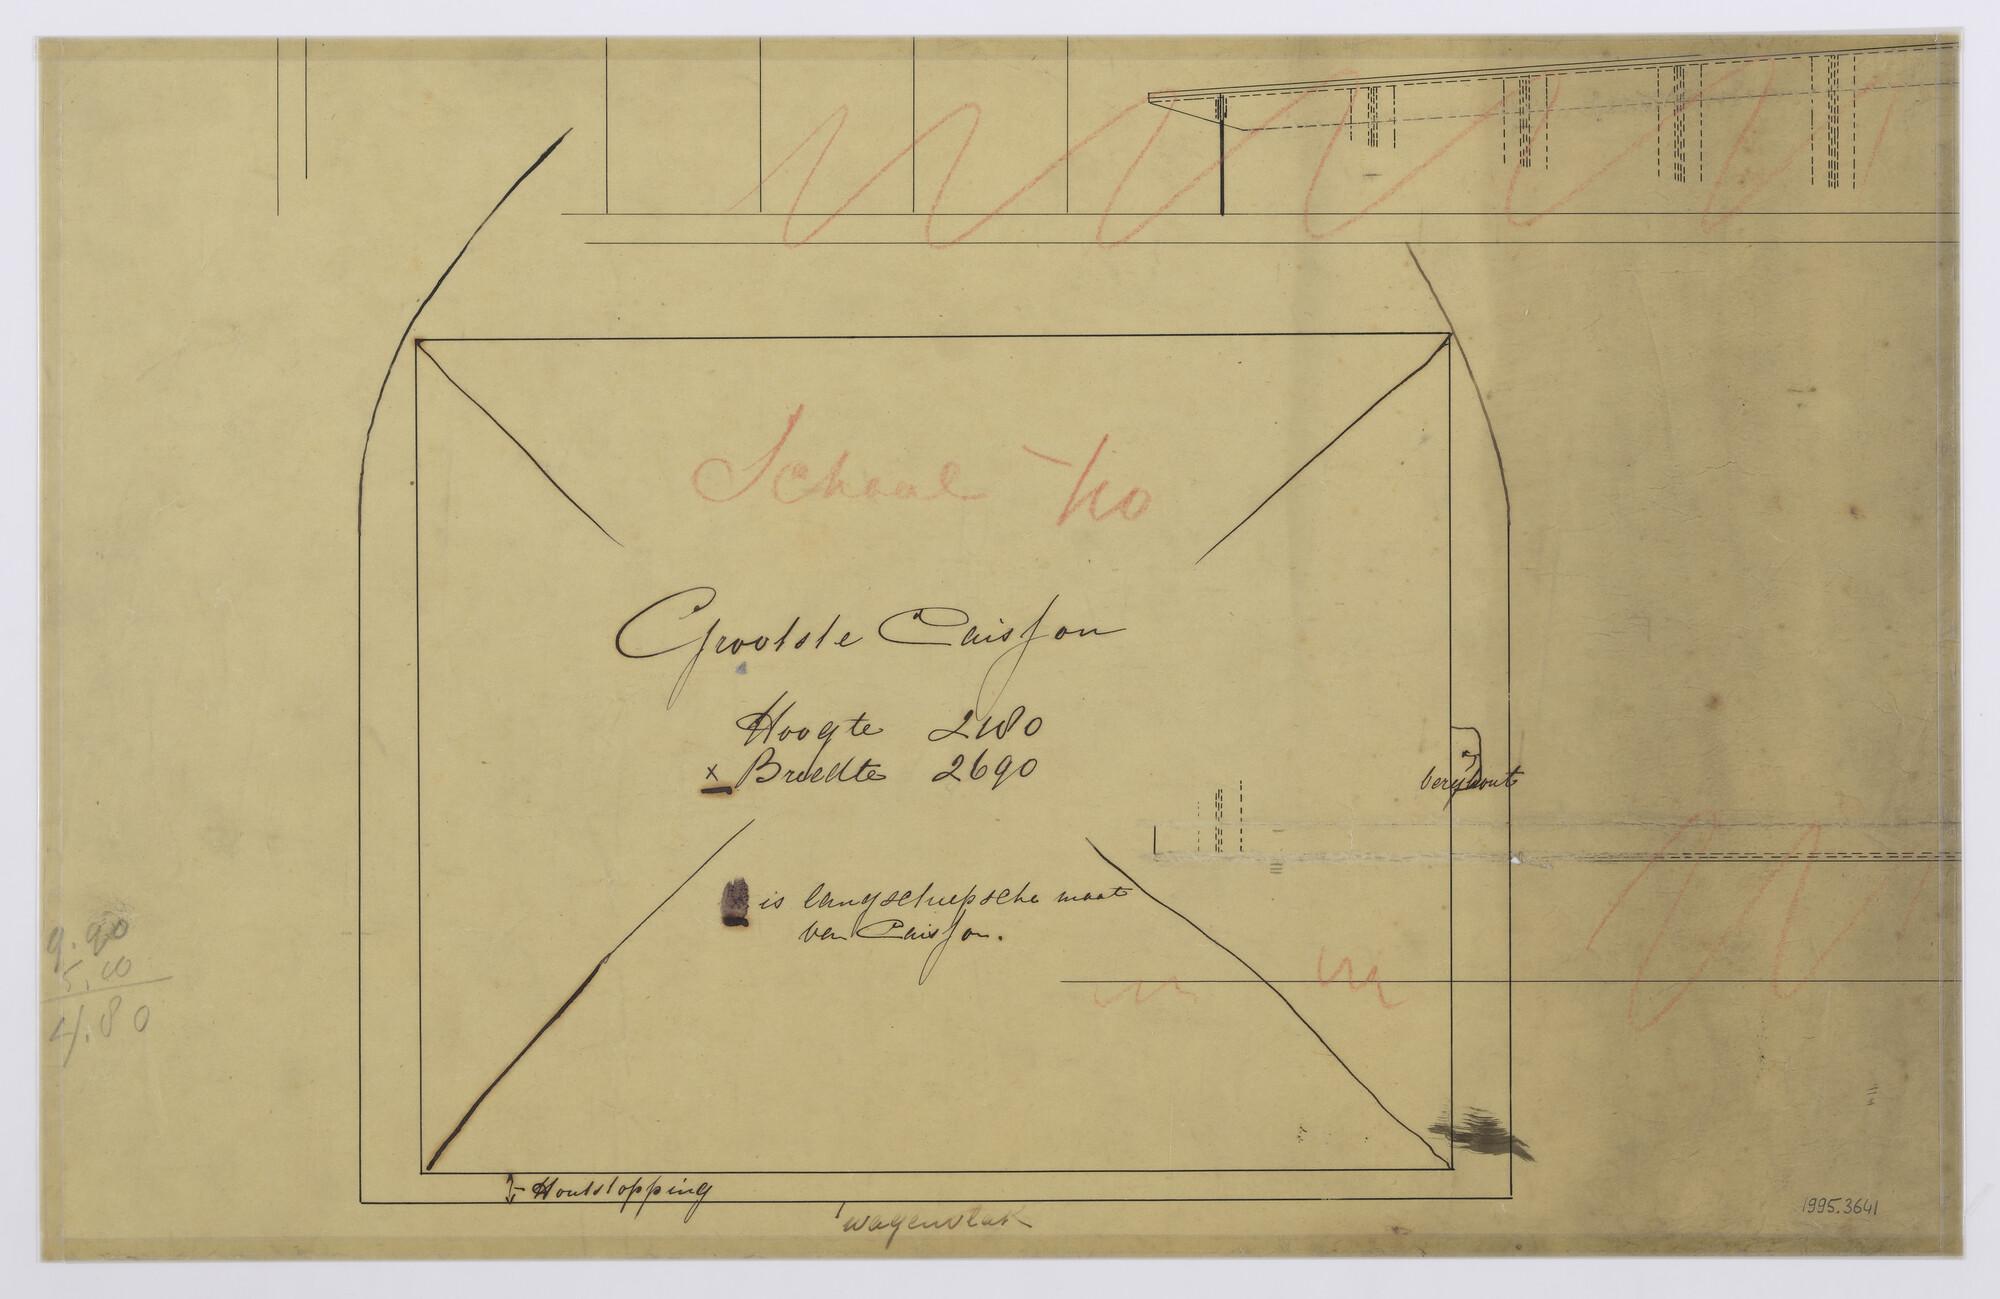 Schaal 1/10
Grootste Caisson
Hoogte 2180
x Breedte 2690
is langscheepsche maat
van Caisson.
berghout
9.90
5.10
4.80
Houtstopping
wagenvlak
1995.3641